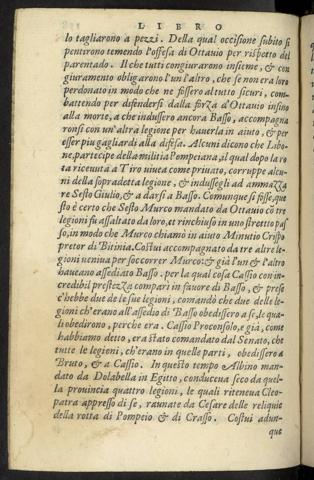 LIBRO
lo tagliarono a pezzi. Della qual occisione subito si
pentirono temendo l'offesa di Ottauio per rispetto del
parentado. Il che tutti congiurarono insieme, & con
giuramento obligarono l'un l'altro, che se non era loro
perdonato in modo che ne fossero al tutto sicuri, com
battendo per difendersi dalla forza d'Ottauio insino
alla morte, a che indussero ancora Basso, accompagna
ronsi con un'altra legione per hauerla in aiuto, & per
esser piu gagliardi alla difesa. Alcuni dicono che Libo-
ne, partecipe della militia Pompeiana, il qual dopo la ro
ta riceuuta a Tiro uiuea come priuato, corruppe alcu-
ni della sopradetta legione, & indussegli ad ammazza
re Sesto Giulio, & a darsi a Basso. Comunque si fosse, que
sto è certo che Sesto Murco mandato da Ottauio cō tre
legioni fu assaltato da loro, et rinchiuso in uno stretto pas
so, in modo che Murco chiamò in aiuto Minutio Crispo
pretor di Bitinia. Costui accompagnato da tre altre le-
gioni ueniua per soccorrer Murco: & già l'un & l'altro
haueano assediato Basso. per la qual cosa Cassio con in-
credibil prestezza comparì in fauore di Basso, & prese
c'hebbe due de le sue legioni, comandò che due delle le-
gioni ch'erano all'assedio di Basso obedissero a se, le qua-
li obedirono, perche era. Cassio Proconsolo, e già, come
habbiamo detto, era stato comandato dal Senato, che
tutte le legioni, ch'erano in quelle parti, obedissero a
Bruto, & a Cassio. In questo tempo Albino man-
dato da Dolabella in Egitto, conduceua seco da quel-
la prouincia quattro legioni, le quali riteneua Cleo-
patra appresso di se, raunate da Cesare delle reliquie
della rotta di Pompeio & di Crasso. Costui adun-
que